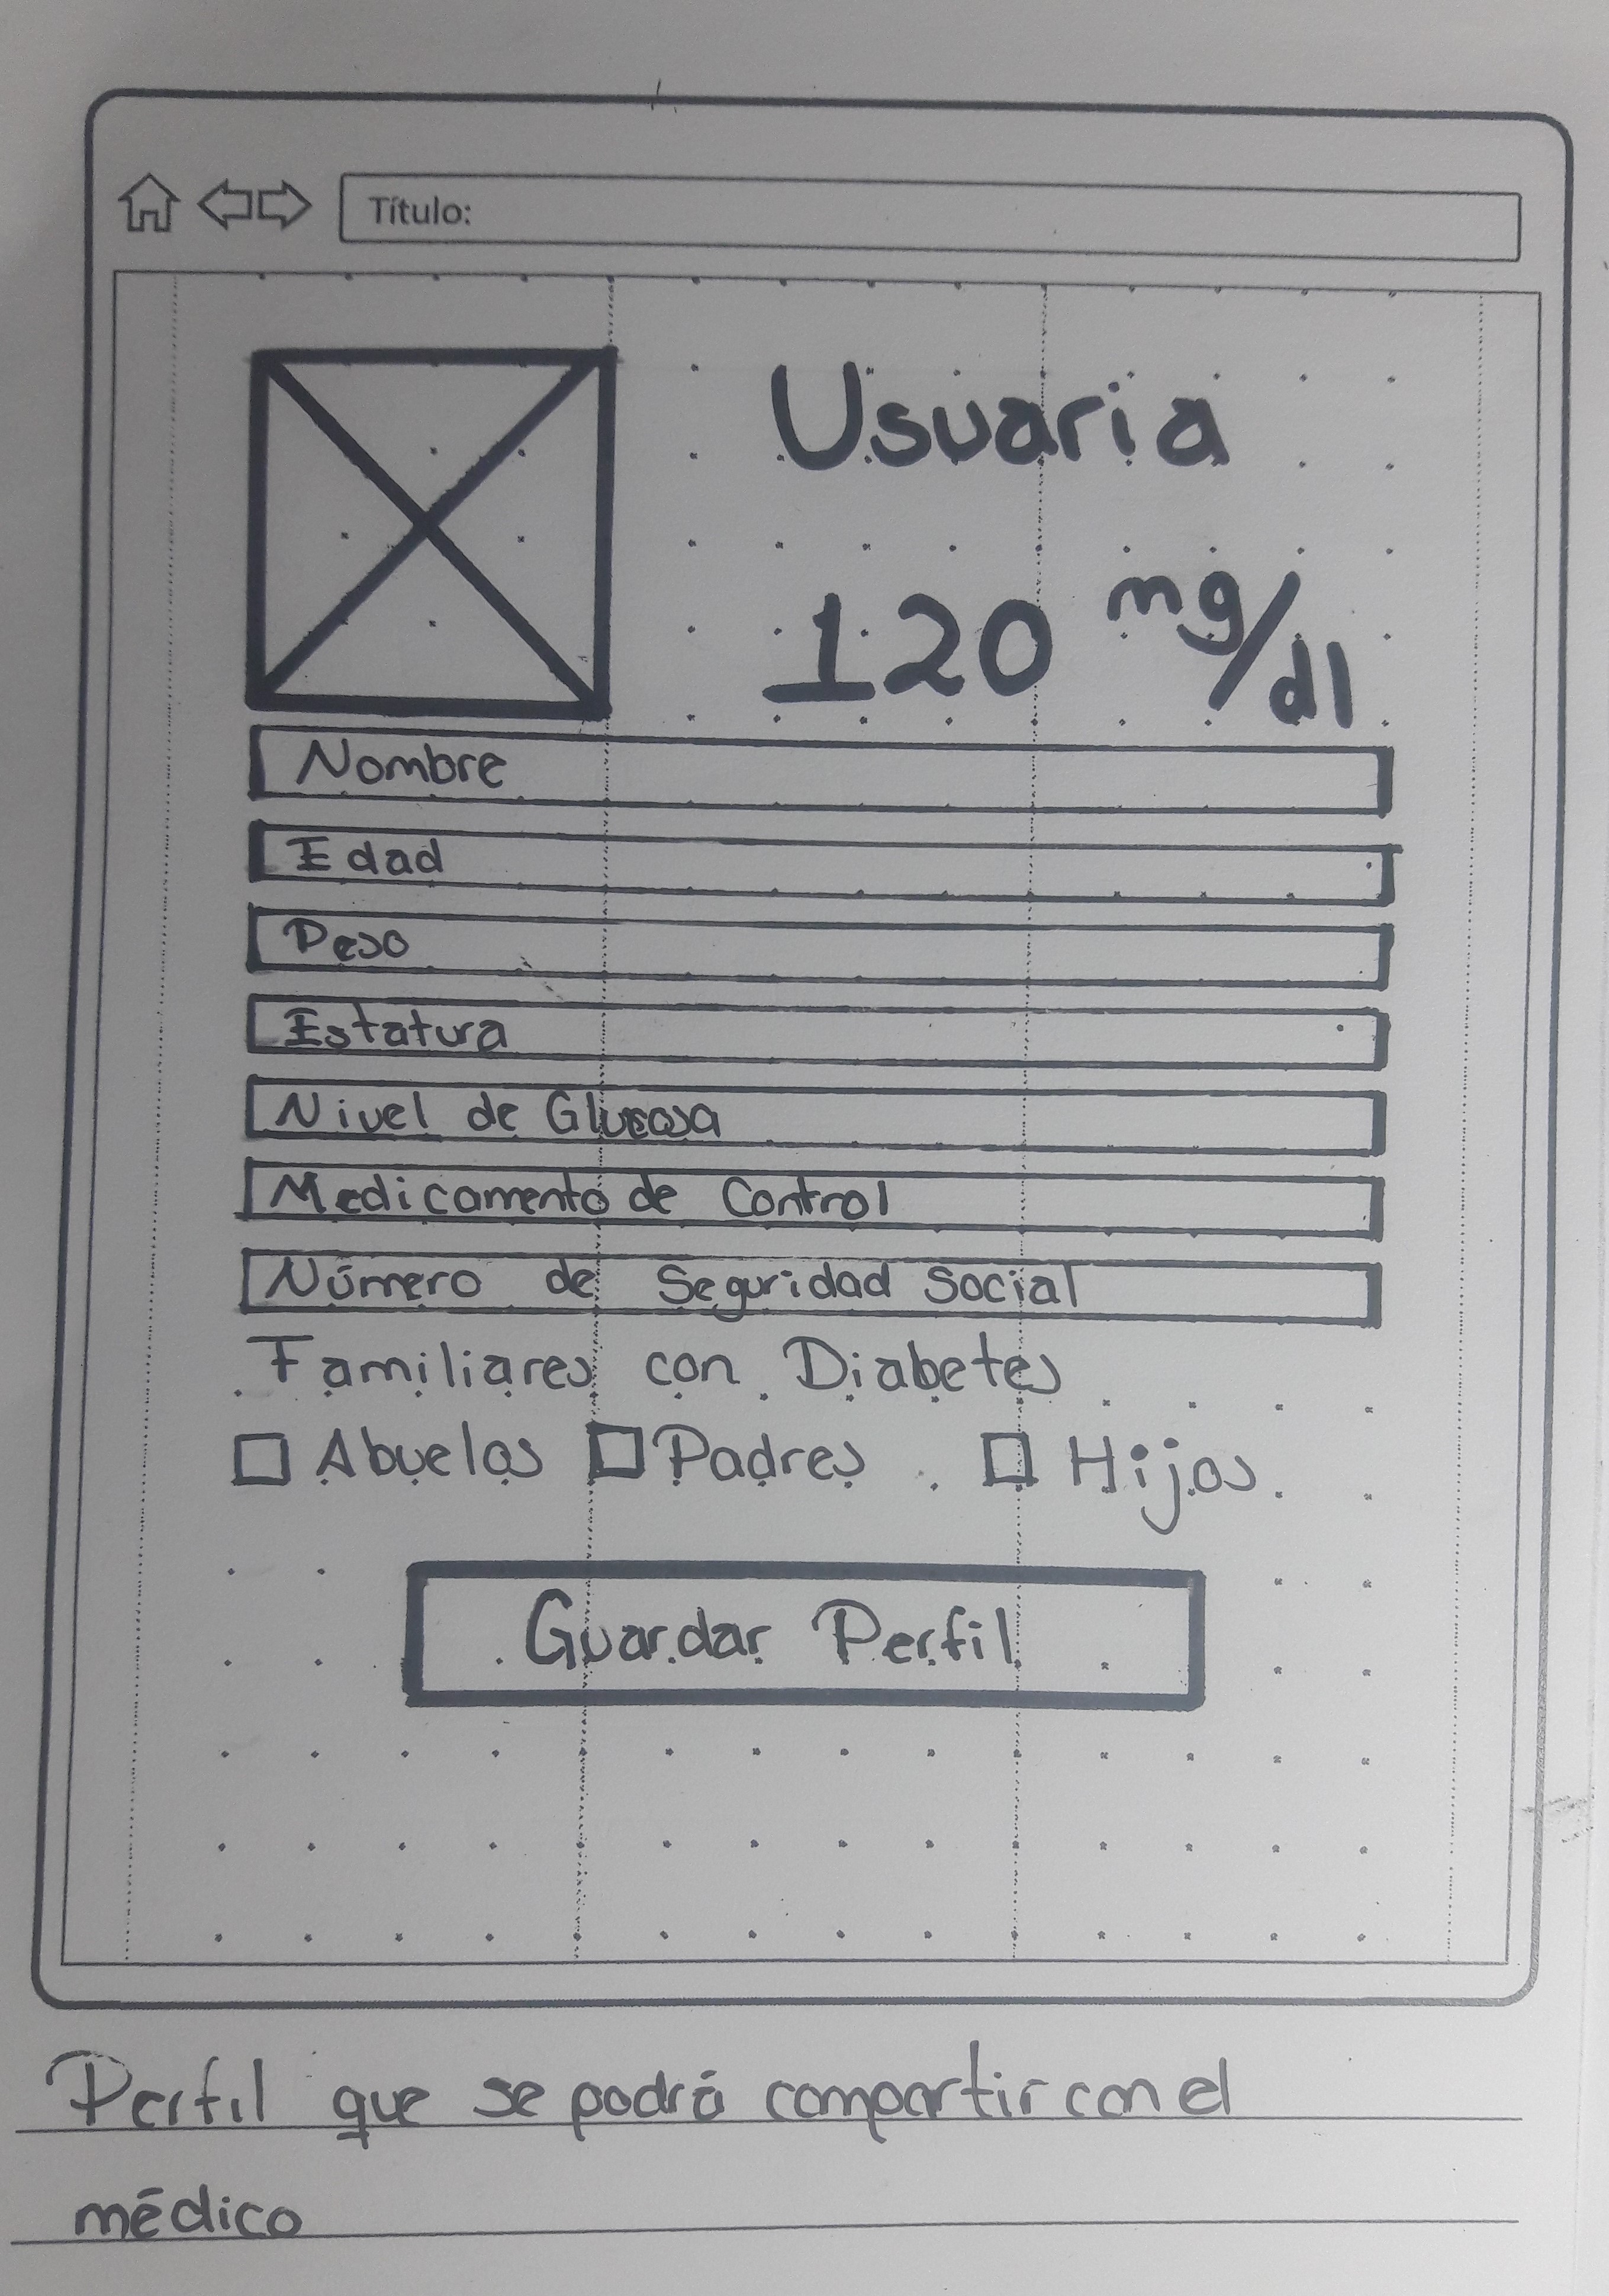 Título:
Usuaria
120 mg/dl
Nombre
Edad
Peso
Estatura
Nivel de Glucosa
Medicamento de Control
Número de Seguridad Social
Familiares con Diabetes
Abuelos Padres Hijos
Guardar Perfil
Perfil que se podrá compartir con el
médico